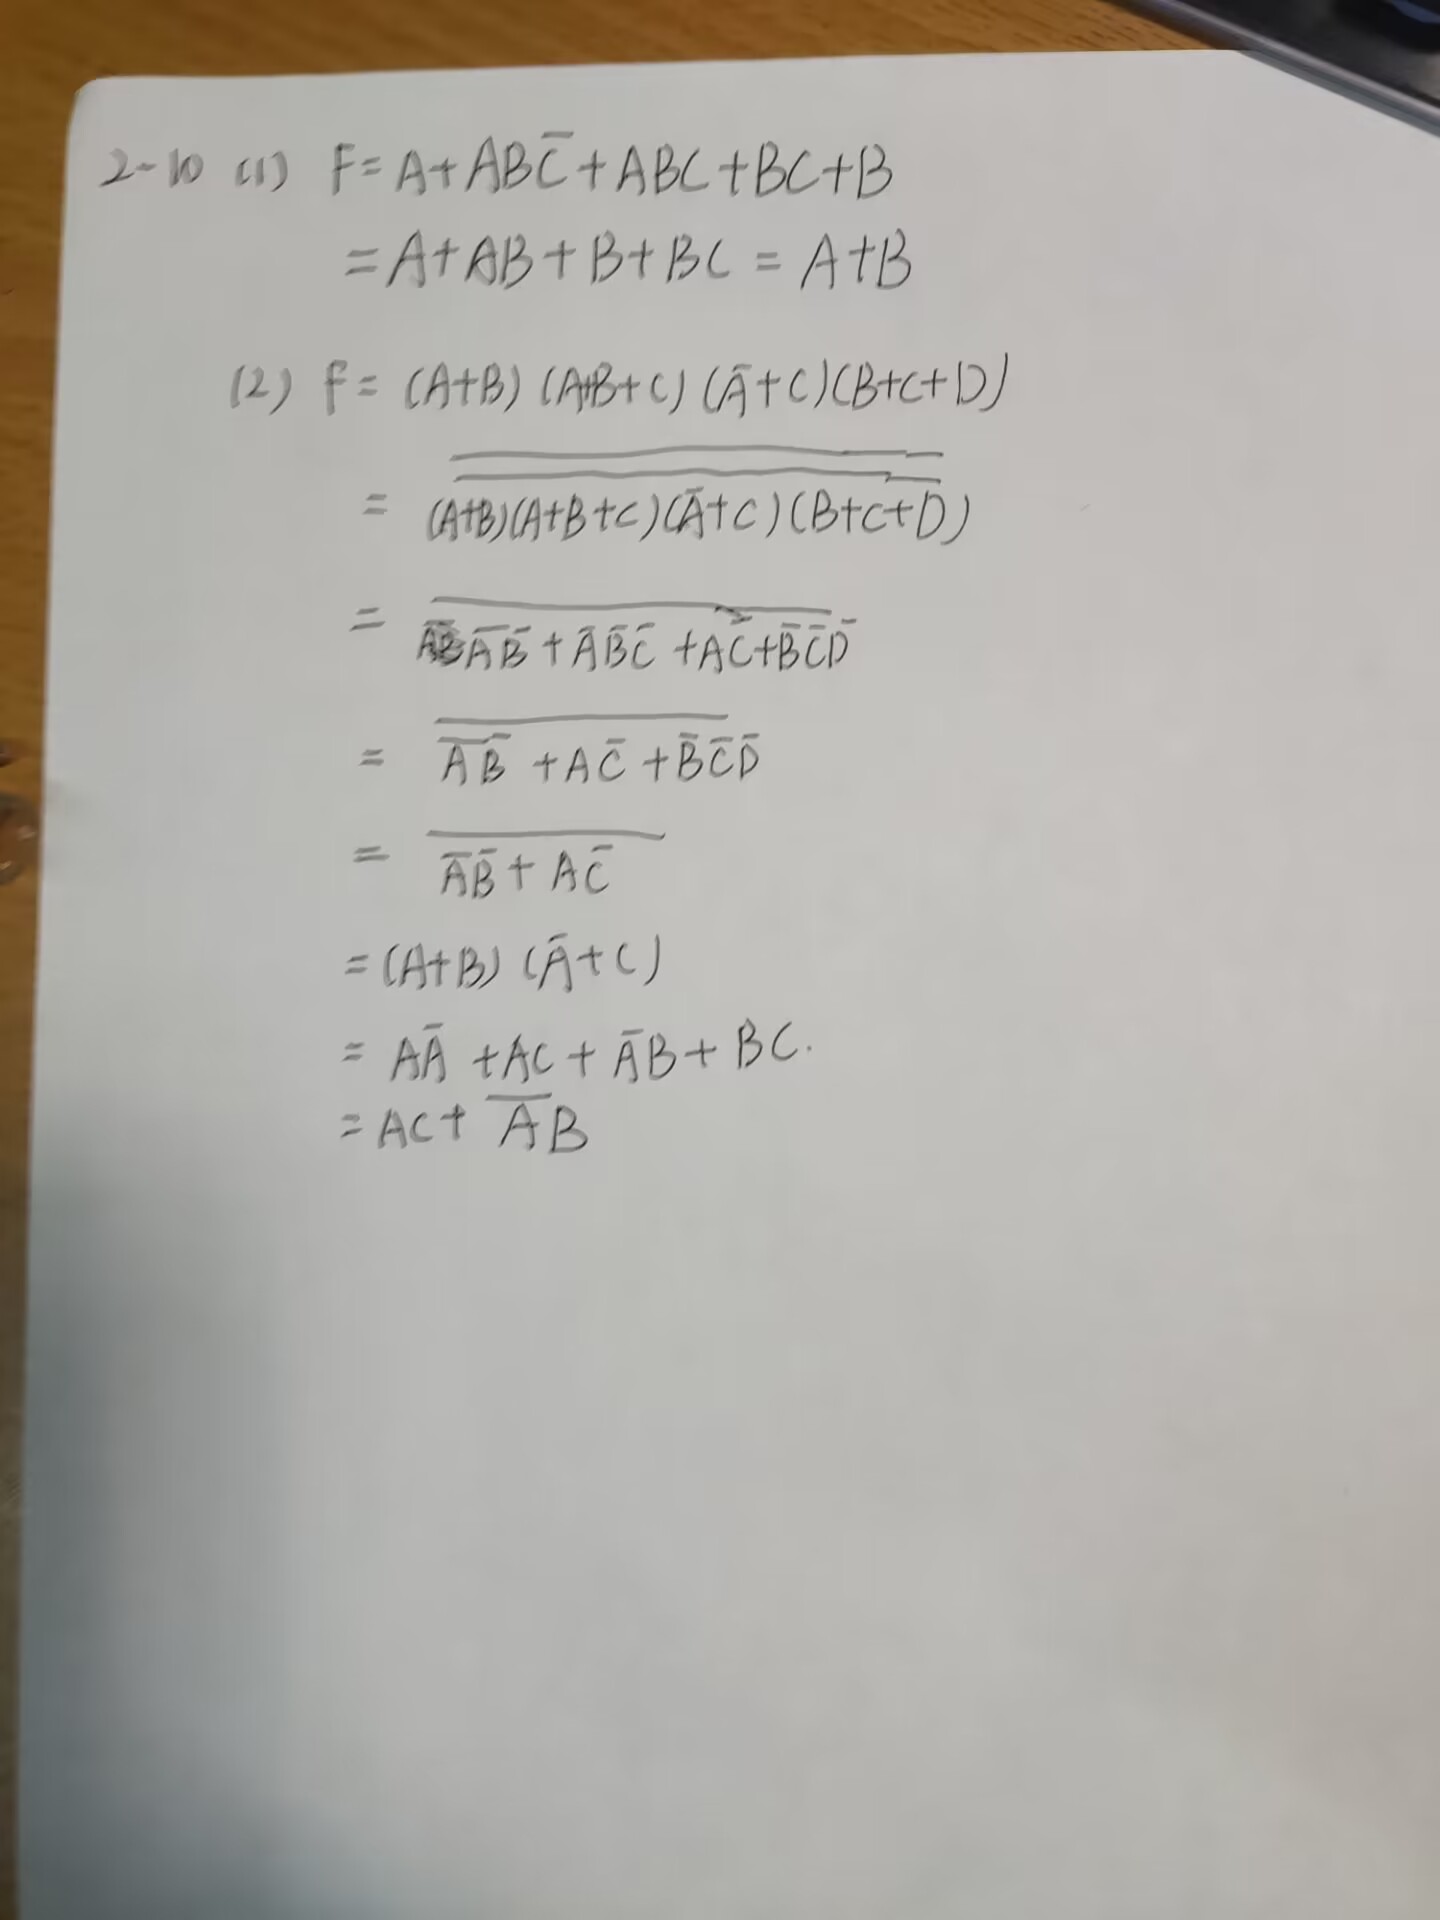 2-10 (1) F = A+ABC̅+ABC+BC+B
=A+AB+B+BC = A+B
(2) F = (A+B) (A+B+C) (A̅+C)(B+C+D)
= \overline{\overline{(A+B)(A+B+C)(A̅+C)(B+C+D)}}
= \overline{A̅B̅+A̅B̅C̅+AC̅+B̅C̅D̅}
= \overline{A̅B̅+AC̅+B̅C̅D̅}
= \overline{A̅B̅+AC̅}
=(A+B) (A̅+C)
= AA̅+AC+A̅B+BC.
= AC+A̅B